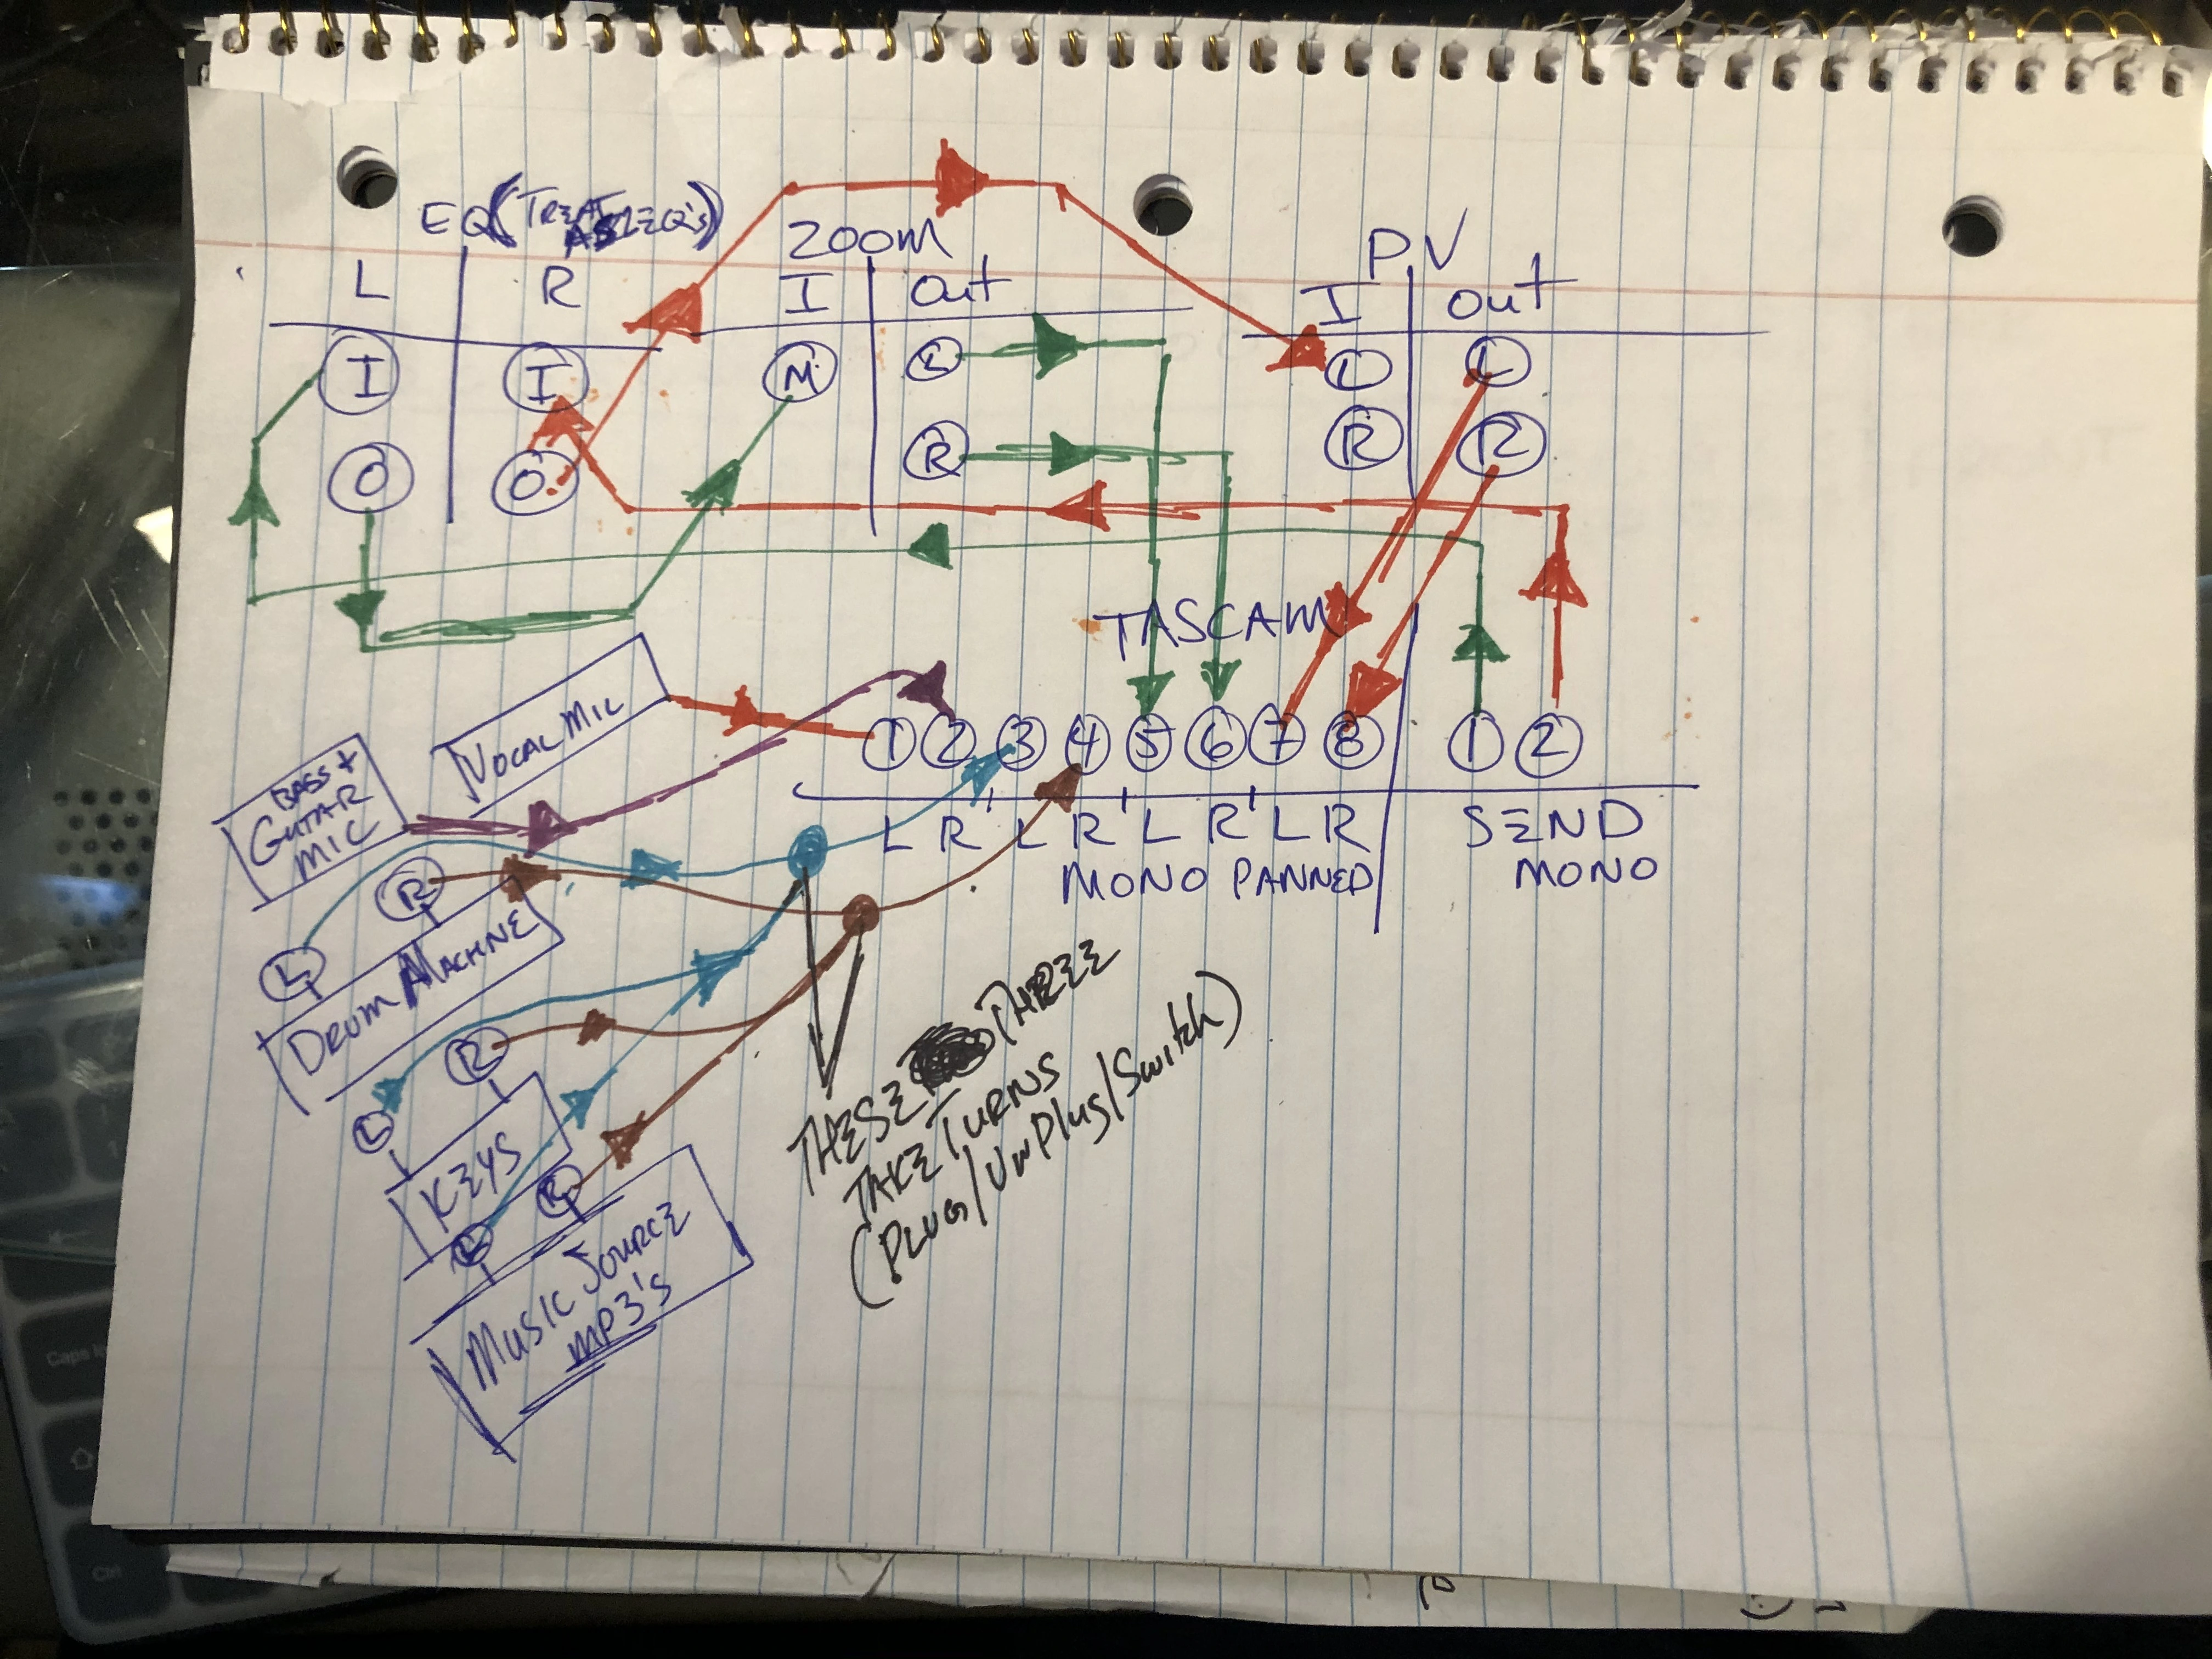 EQ (TREAT AS 2 EQ'S)
L R
I I
O O
ZOOM
I Out
M L
R
PV
I Out
L L
R R
TASCAM
1 2 3 4 5 6 7 8 1 2
L R' L R' L R' L R SEND
MONO PANNED MONO
VOCAL MIC
BASS +
GUITAR
MIC
R
L
DRUM MACHINE
R
L
KEYS
R
L
MUSIC SOURCE
MP3's
THESE THREE
TAKE TURNS
(PLUG/UNPlug/Switch)
Caps
Ctrl